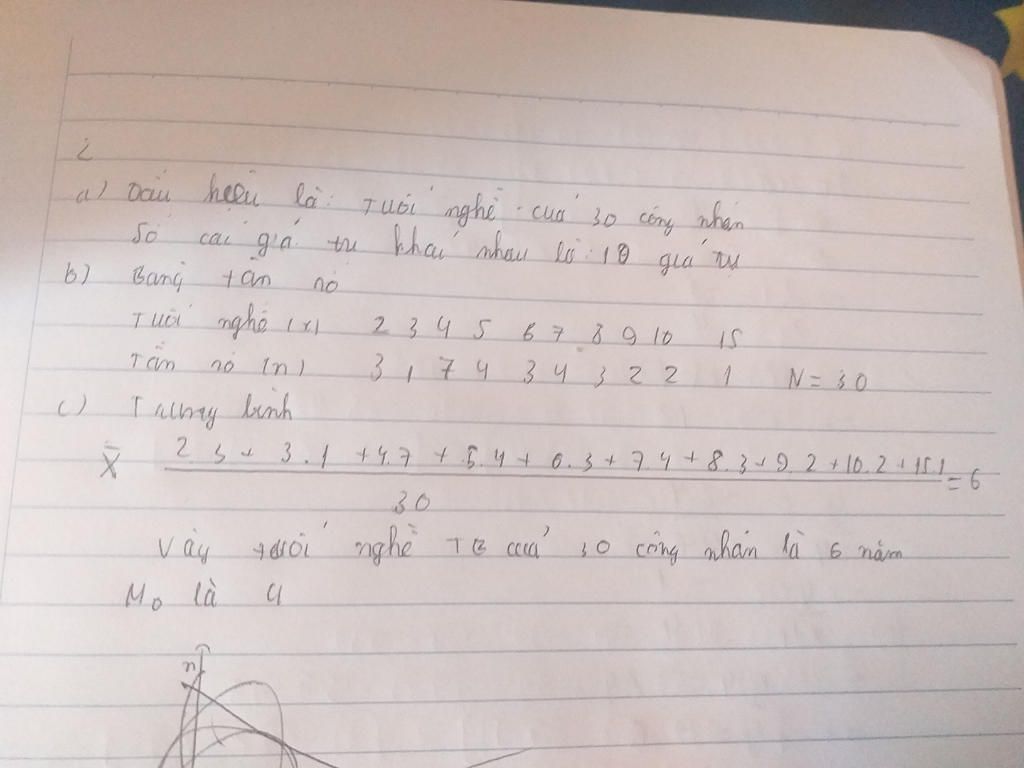 a) Dấu hiệu là: Tuổi nghề của 30 công nhân
Số các giá trị khác nhau là: 10 giá trị
b) Bảng tần số
Tuổi nghề (x) 2 3 4 5 6 7 8 9 10 15
Tần số (n) 3 1 7 4 3 4 3 2 2 1 N = 30
c) Trung bình
X̄ 2.3 + 3.1 + 4.7 + 5.4 + 6.3 + 7.4 + 8.3 + 9.2 + 10.2 + 15.1 = 6
30
Vậy tuổi nghề TB của 30 công nhân là 6 năm
M₀ là 4
n